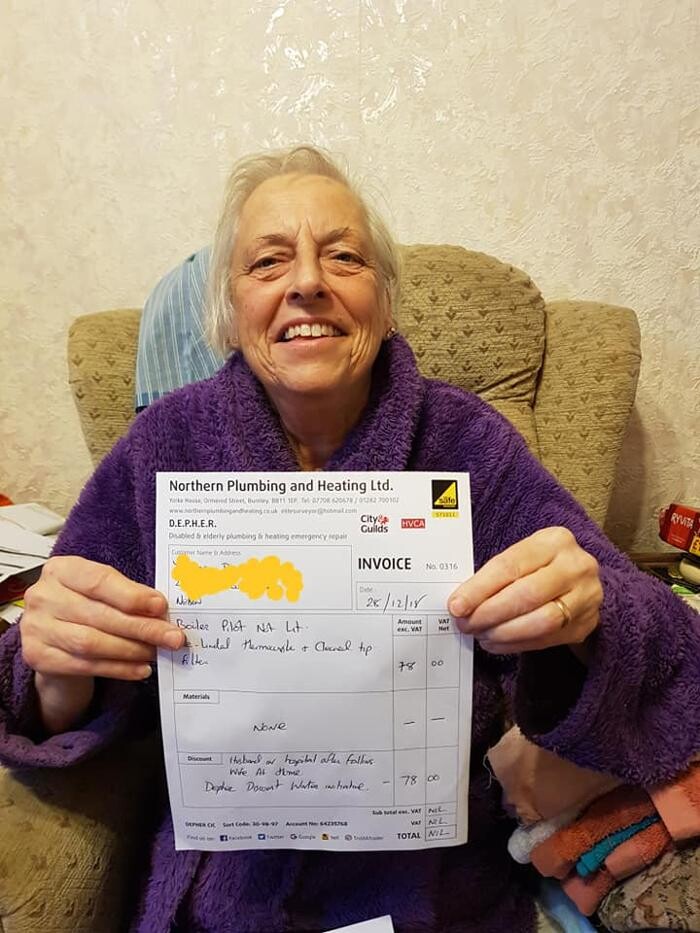 Northern Plumbing and Heating Ltd.
Yorke House, Ormerod Street, Burnley, BB11 1EP. Tel: 07708 620678 / 01282 700102
www.northernplumbingandheating.co.uk elitesurveyor@hotmail.com
D.E.P.H.E.R.
Disabled & elderly plumbing & heating emergency repair
City& Guilds
HVCA
safe
Customer Name & Address
Nelson
INVOICE No. 0316
Date
28/12/18
Amount exc. VAT
VAT Net
Boiler Pilot Not Lit.
thermocouple + Cleaned top
filter
78 00
Materials
None
— —
Discount
Husband in hospital after falling
Wife At Home
Depher Discount Winter initiative.
- 78 00
Sub total exc. VAT NIL
VAT NIL
TOTAL NIL
DEPHER CIC Sort Code: 30-98-97 Account No: 64235768
Find us on: Facebook Twitter Google Yell TrustATrader
RYVITA